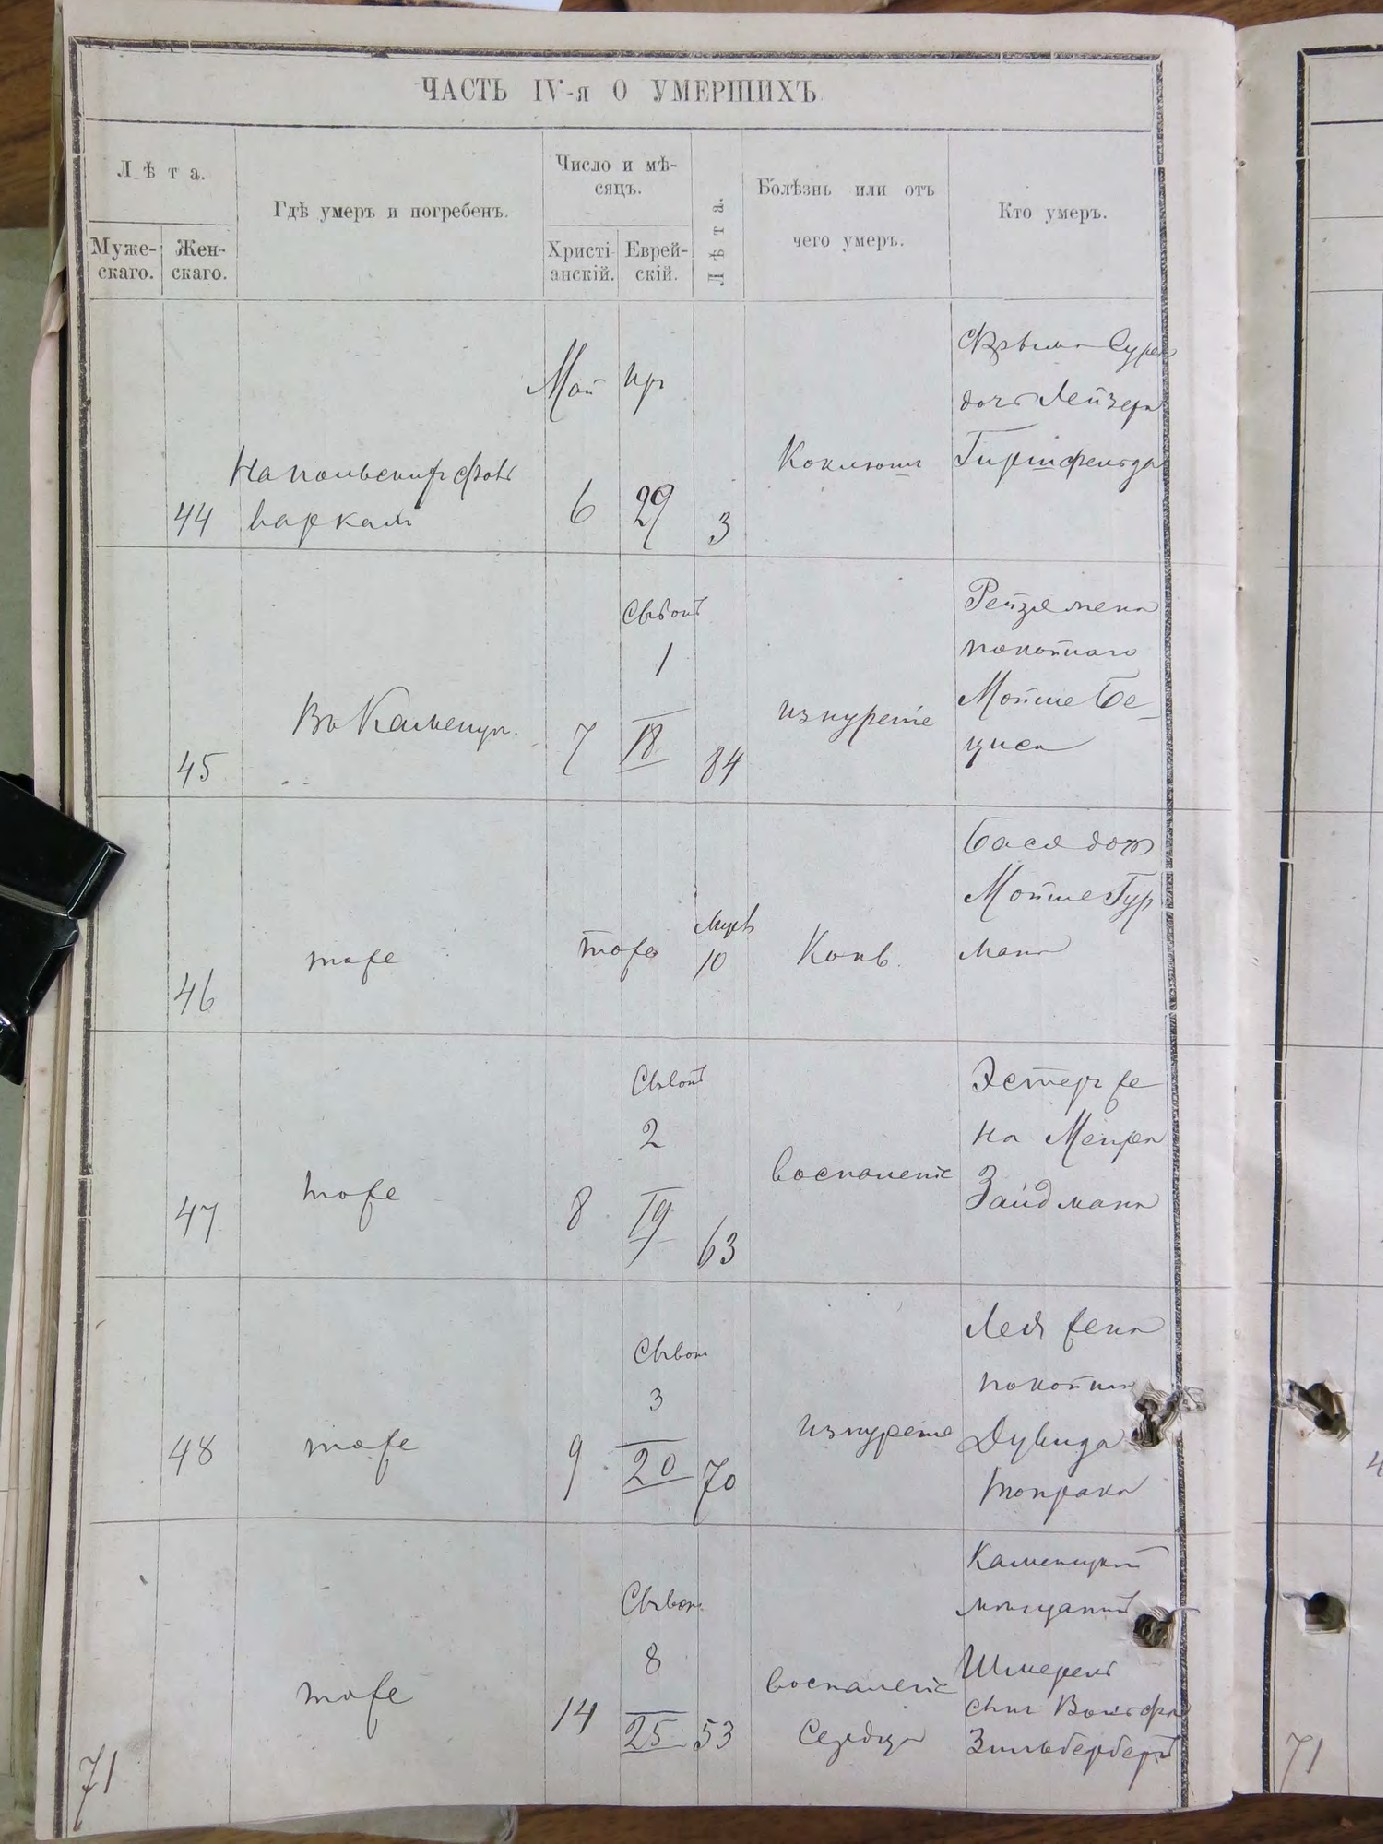 ЧАСТЬ IV-я О УМЕРШИХЪ
Лѣта.
Муже-
скаго.
Жен-
скаго.
Гдѣ умеръ и погребенъ.
Число и мѣ-
сяцъ.
Христі-
анскій.
Еврей-
скій.
Лѣта.
Болѣзнь или отъ
чего умеръ.
Кто умеръ.
44
На польскихъ фоль
варкахъ
Май
6
29
3
Коклюшъ
Сура
дочь Лейзера
Гиршфельда
45
Въ Каменцѣ
7
1
18
84
изнуреніе
Рейзя жена
покойнаго
Мойше Бе-
46
тоже
тоже
10
Конв.
Бася дочь
Мойше Гур
мана
47
тоже
8
2
19
63
воспаленіе
Эстеръ же
на Мейера
Зайдмана
48
тоже
9
3
20
70
изнуреніе
Лея жена
покойн
Дувида
71
тоже
14
8
25
53
воспаленіе
сердца
Каменецкій
мѣщанинъ
Шмерель
сынъ Вольфа
Зильбербергъ
71